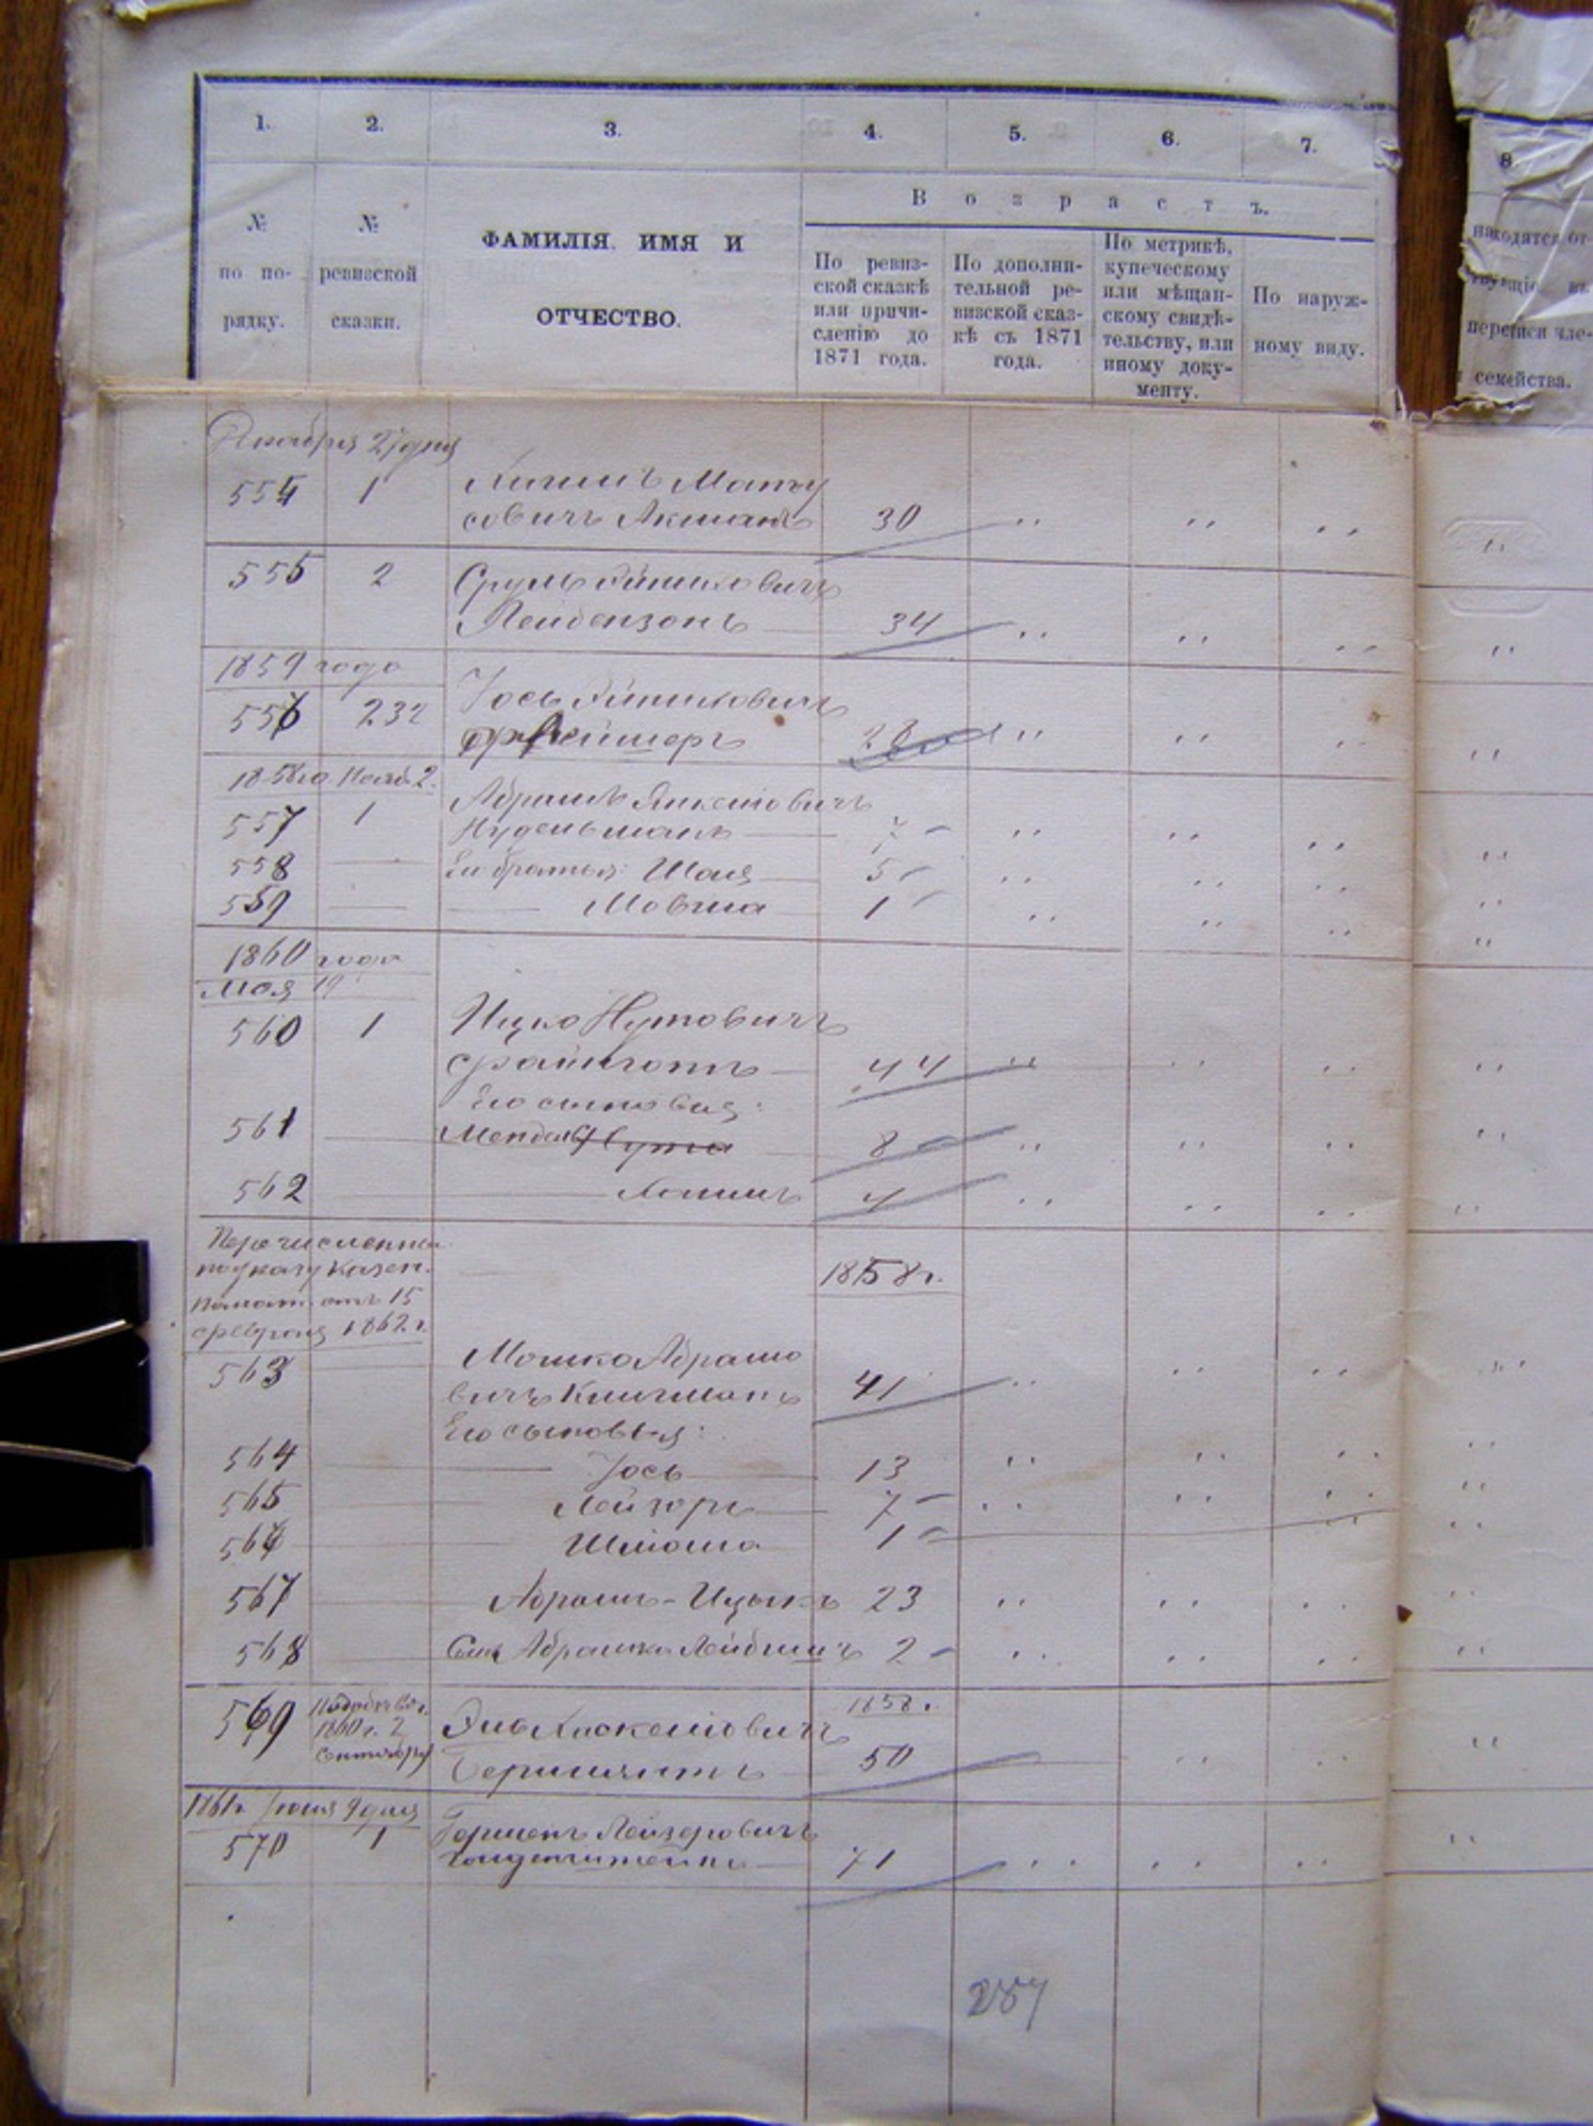 1. 2. 3. 4. 5. 6. 7.
8.
В о з р а с т ъ.
№ по по- рядку.
№ ревизской сказки.
ФАМИЛІЯ. ИМЯ И
ОТЧЕСТВО.
По ревиз-
ской сказкѣ
или причи-
сленію до
1871 года.
По дополни-
тельной ре-
визской сказ-
кѣ съ 1871
года.
По метрикѣ,
купеческому
или мѣщан-
скому свидѣ-
тельству, или
иному доку-
менту.
По наруж-
ному виду.
находятся от-
переписи чле-
семейства.
Декабря 27 дня
554 1 Мату
совичъ Акманъ 30 " " " "
555 2 Сруль
Лейдензонъ 34 " " " "
1859 года
556 232 Іось
28 " " " "
557 1 Абрамъ Янкелювичъ
Нудельманъ 7 " " " "
558 Его братья: Шая 5 " " " "
559 Мовша 1 " " " "
1860 года
Мая 19
560 1 Ицко Нутовичъ
Файнготъ 44 " " " "
Его сыновья:
561 Мендель Нута 8 " " " "
562 Хаимъ 4 " " " "
Перечисленны
по указу Казен.
Палат. отъ 15
февраля 1862 г.
1858 г.
563 Мошко Абрамо
вичъ Клигманъ 41 " " " "
Его сыновья:
564 Іось 13 " " " "
565 Лейзоръ 7 " " " "
566 Шліома 1 " "
567 Абрамъ-Ицыкъ 23 " " " "
568 Сынъ Абрамка 2 " " " "
1858 г.
569 1860 г. 2 Сентября
Эль Хаскелювичъ
50 " " "
1861 г. Іюня 9 дня
570 1 Гершенъ Лейзеровичъ
71 " " " "
257